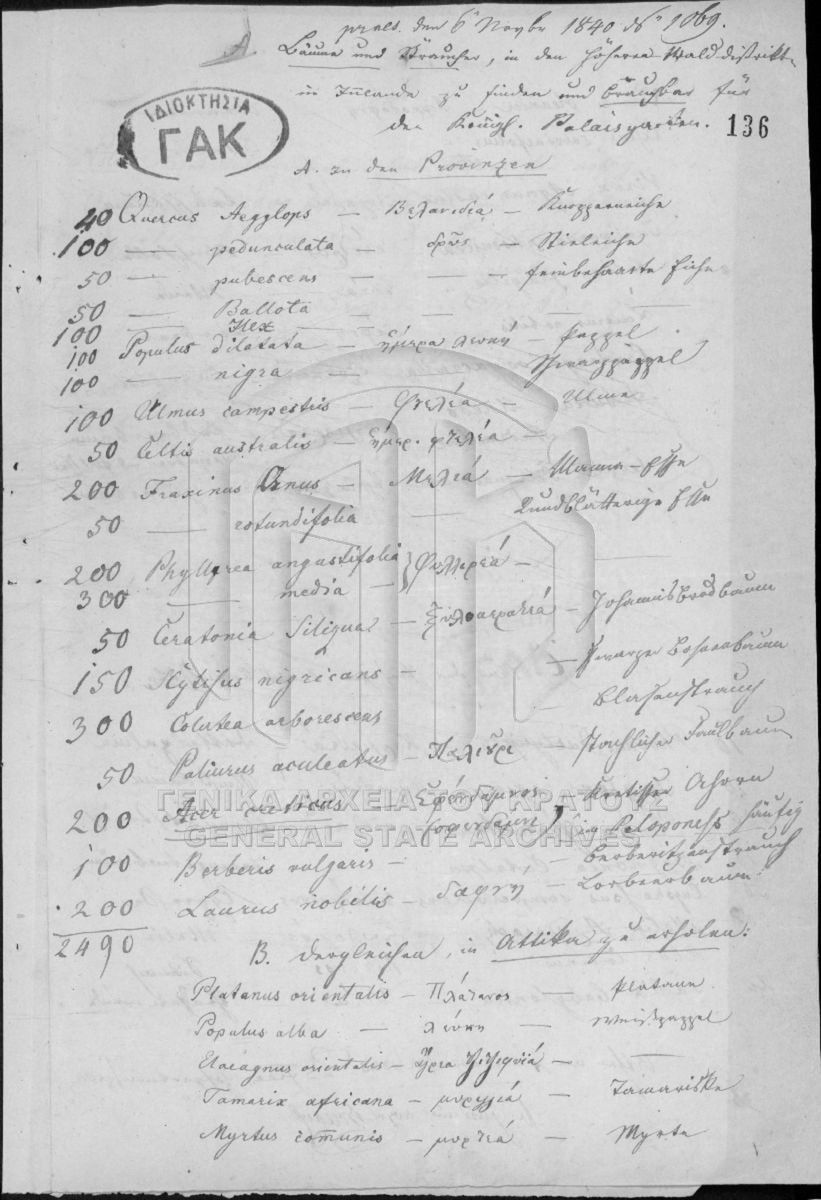 praes. den 6 Novbr 1840 No 1069.
A.
Bäume und Sträucher, in den höheren Walddistrikten
im Inlande zu finden und brauchbar für
den Königl. Palaisgarten.
136
ΙΔΙΟΚΤΗΣΙΑ
ΓΑΚ
A. In den Provinzen
40 Quercus Aegylops — Βελανιδιά — Knoppereiche
100 — pedunculata — δρῦς — Stieleiche
50 — pubescens — — feinbehaarte Eiche
50 — Ballota — — —
100 — Ilex —
100 Populus dilatata — ἥμερα λευκή — Pappel
100 — nigra — Schwarzpappel
100 Ulmus campestris — Φτελέα — Ulme
50 Celtis australis — ἥμερ. φτελέα —
200 Fraxinus Ornus — Μελιά — Manna-Esche
50 — rotundifolia — Rundblätterige Esche
200 Phyllyrea angustifolia } Φυλλιρεά —
300 — media —
50 Ceratonia Siliqua — Ξυλοκερατιά — Johannisbrodbaum
150 Cytisus nigricans — — Schwarzer Bohnenbaum
300 Colutea arborescens — Blasenstrauch
50 Paliurus aculeatus — Παλιοῦρι — Stachlicher Faulbaum
200 Acer creticus Σφένδαμνος — Kretischer Ahorn
im Peloponehs häufig
100 Berberis vulgaris — — Berberitzenstrauch
200 Laurus nobilis — δαφνή — Lorbeerbaum.
2490
B. dergleichen, in Attika zu erholen:
Platanus orientalis — Πλάτανος — Platane
Populus alba — λεύκη — Weißpappel
Elaeagnus orientalis — ἄγρια Τζιτζιφιά —
Tamarix africana — μυρικιά — Tamariske
Myrtus communis — μυρτιά — Myrte
ΓΕΝΙΚΑ ΑΡΧΕΙΑ ΤΟΥ ΚΡΑΤΟΥΣ
GENERAL STATE ARCHIVES